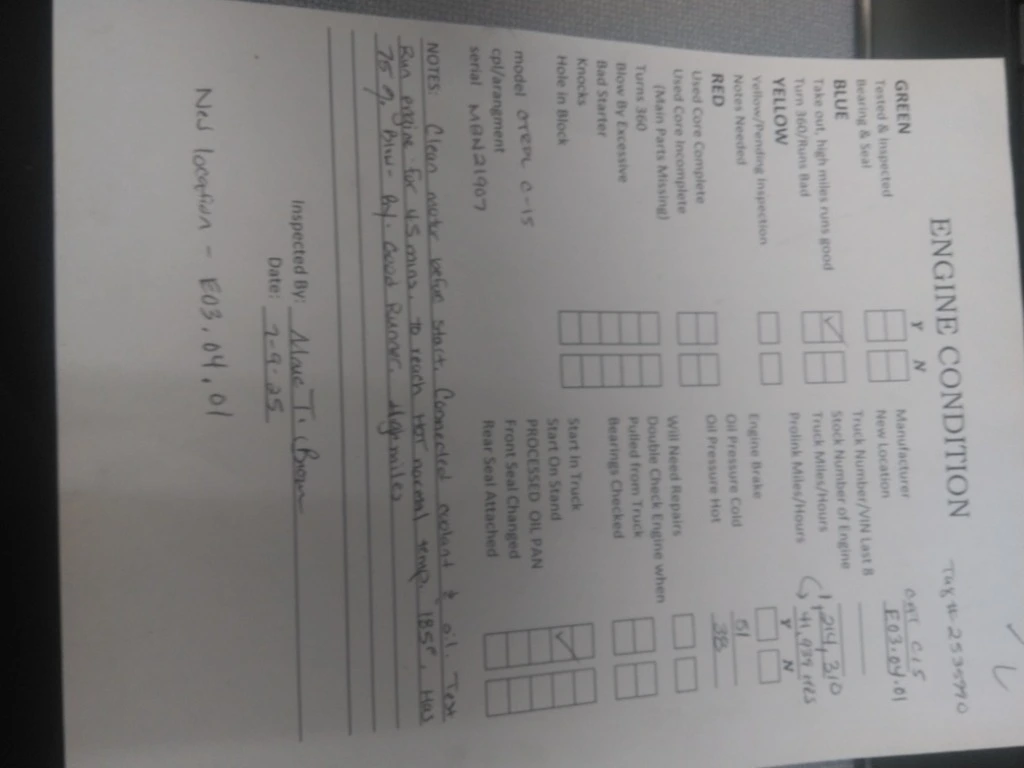 ENGINE CONDITION
Y N
GREEN
Tested & Inspected
Bearing & Seal
BLUE
Take out, high miles runs good
Turn 360/Runs Bad
YELLOW
Yellow/Pending Inspection
Notes Needed
RED
Used Core Complete
Used Core Incomplete
(Main Parts Missing)
Turns 360
Blow By Excessive
Bad Starter
Knocks
Hole in Block
model C-15
cpl/arrangment
serial MBN21907
Manufacturer CAT C15
New Location E03.04.01
Truck Number/VIN Last 8
Stock Number of Engine
Truck Miles/Hours 1,214,310
Prolink Miles/Hours 41,939 HRS
Y N
Engine Brake
Oil Pressure Cold 51
Oil Pressure Hot 38
Will Need Repairs
Double Check Engine when
Pulled from Truck
Bearings Checked
Start in Truck
Start On Stand
PROCESSED OIL PAN
Front Seal Changed
Rear Seal Attached
NOTES: Clean motor before start. Connected coolant & oil. Test
Run engine for 45 mins. to reach HOT normal temp 185°. Has
75% Blow-By. Good Runner. High miles
Inspected By:
Date: 7-9-25
New location - E03.04.01